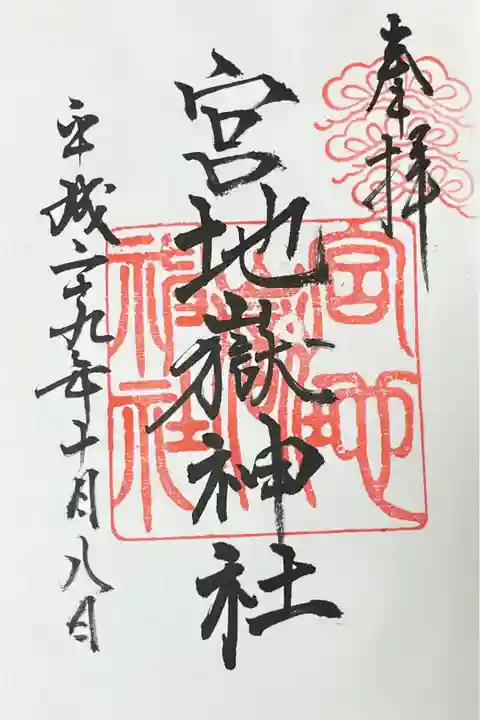 奉拝
宮地嶽神社
平成二十九年十月八日
宮地
嶽神
社